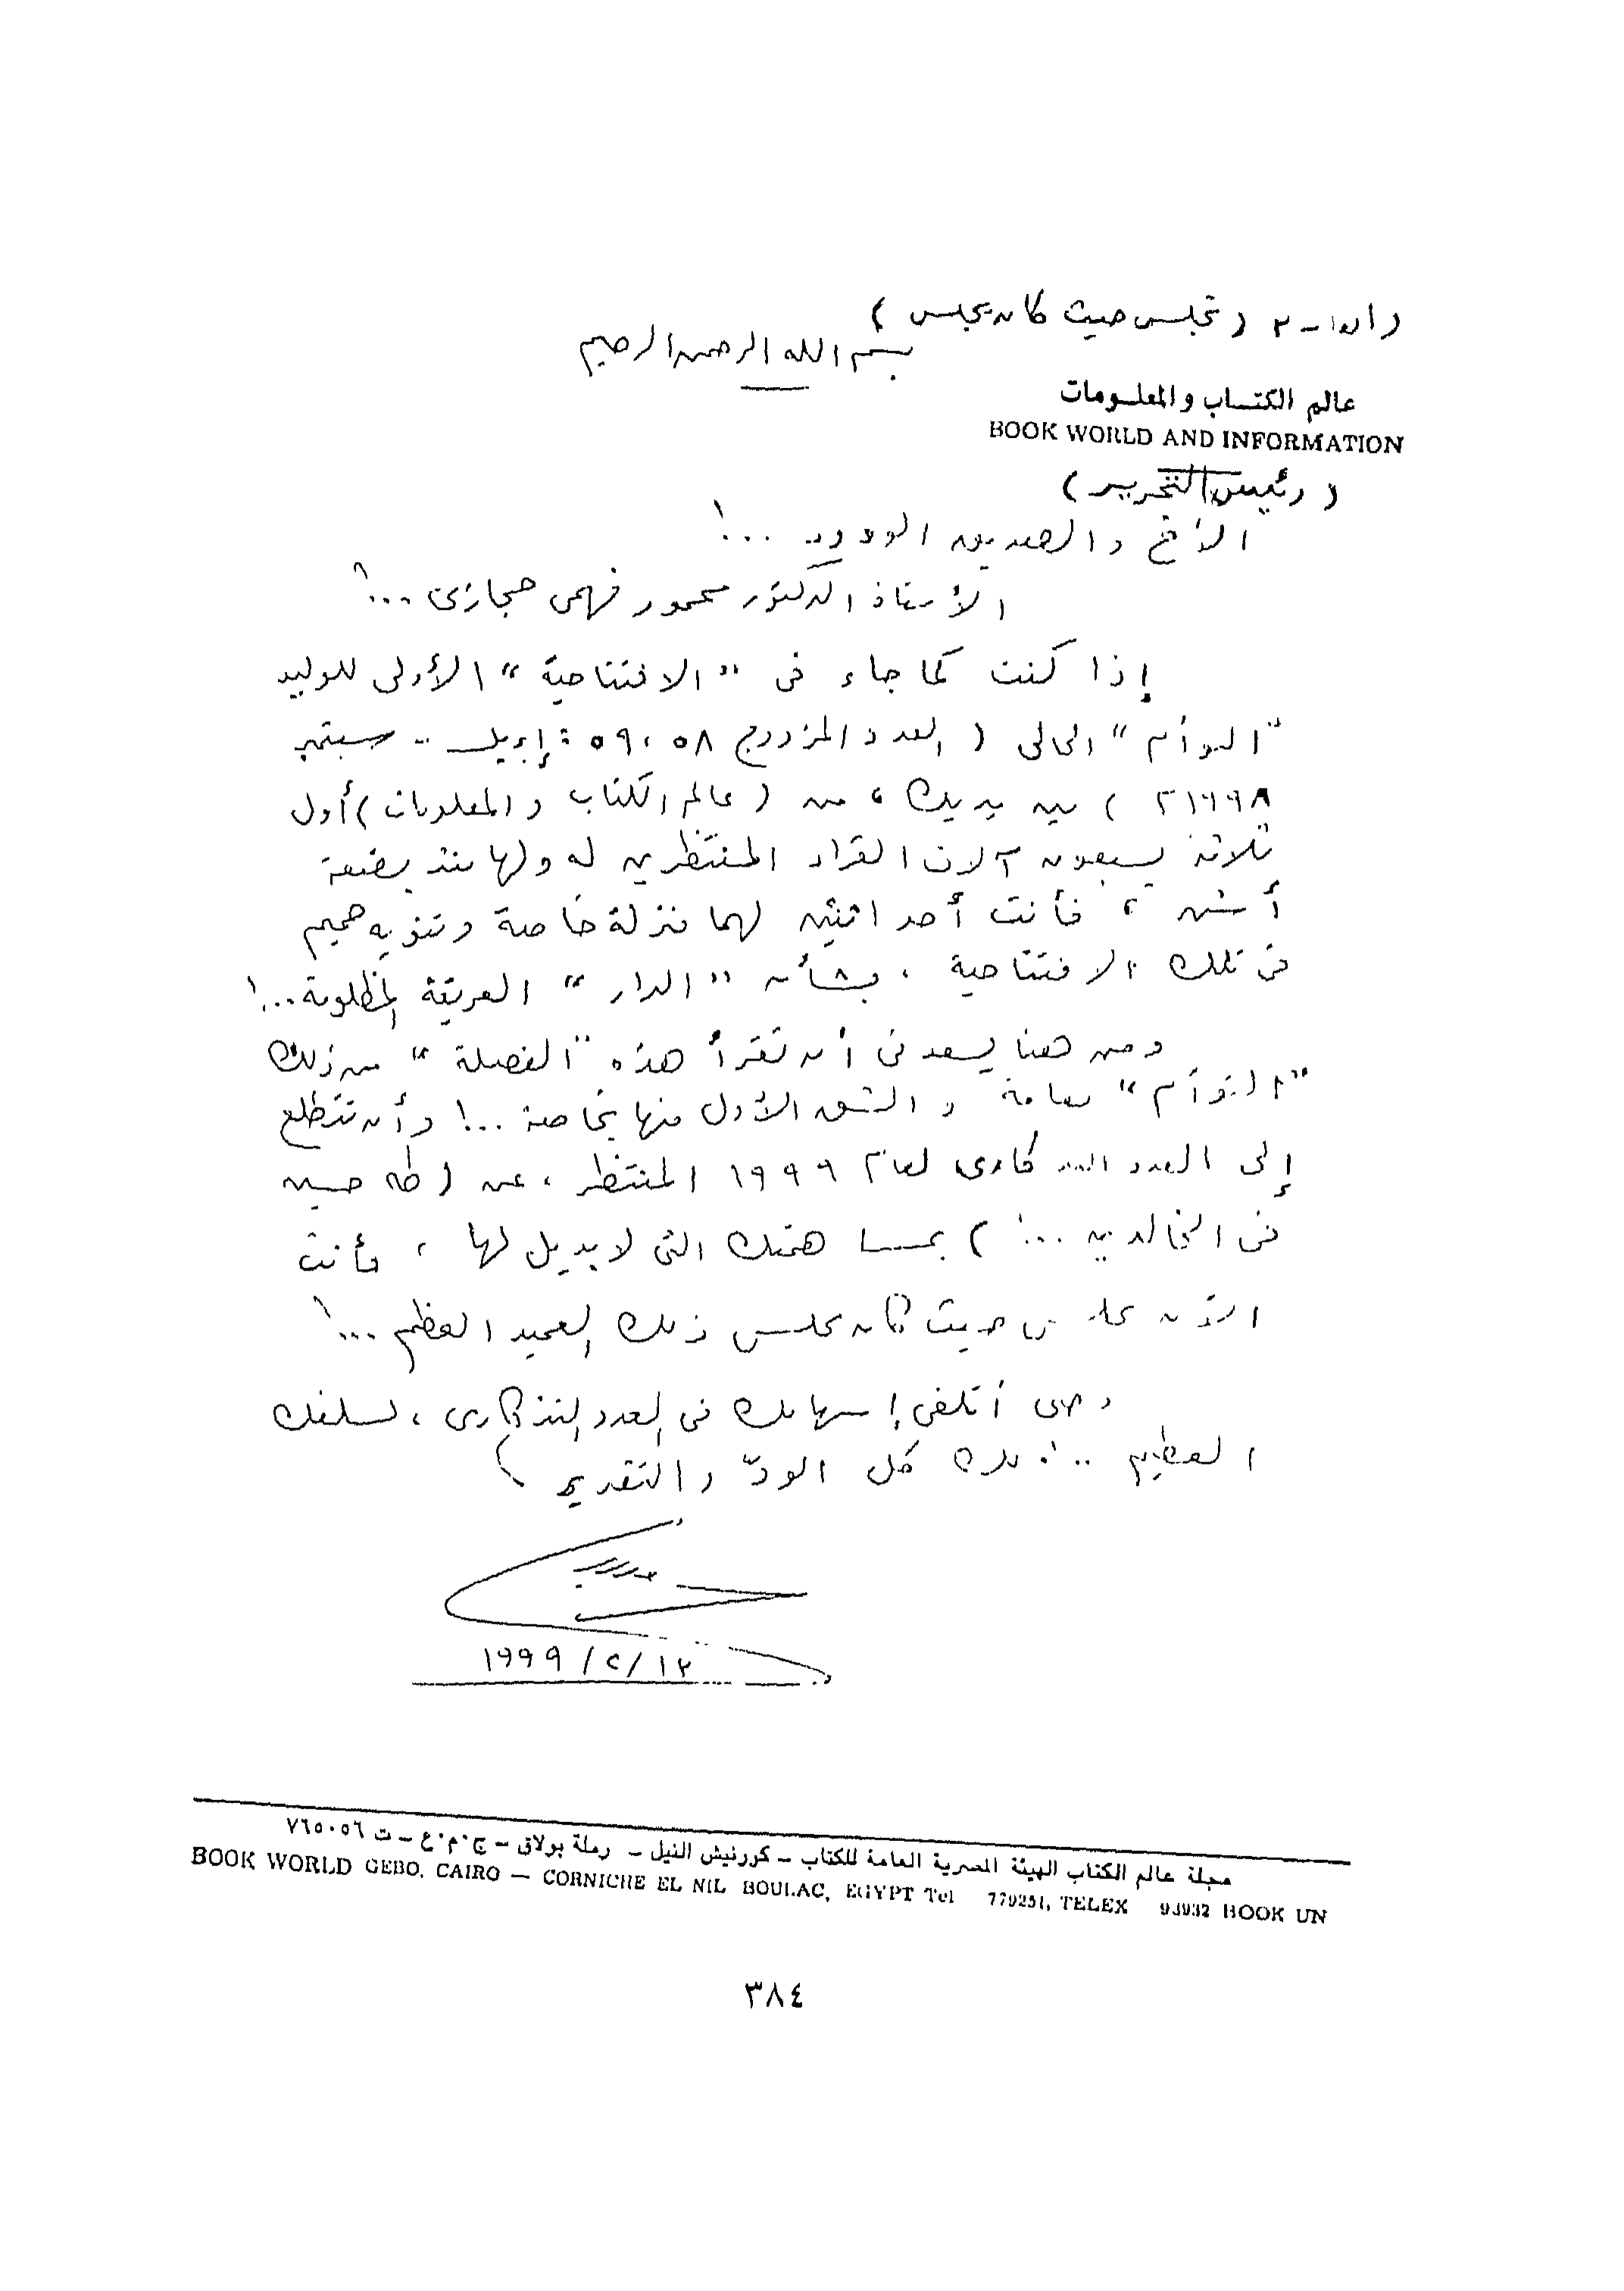 ( تجلس حيث كان يجلس )
بسم الله الرحمن الرحيم
عالم الكتـاب والمعلـومات
BOOK WORLD AND INFORMATION
( رئيس التحرير )
الأخ والصديق الودود ...!
الأستاذ الدكتور محمود فهمى حجازى ...!
إذا كنت كما جاء فى "الافتتاحية" الأولى للوليد
"التوأم" الحالى ( العدد المزدوج ٥٨ ، ٥٩ : إبريل .. سبتمبر
١٩٩٨م ) بين يديك ، من ( عالم الكتاب والمعلومات ) أول
ثلاثة يسبقون آلاف القراء المنتظرين له ولها منذ بضعة
أشهر ، فأنت أحد اثنين لهما منزلة خاصة وتنويه حميم
فى تلك الافتتاحية ، بشأن "الدار" العريقة المظلومة ...!
ومن هنا يسعدنى أن تقرأ هذه "الفصلة" من ذلك
"التوأم" بعامة والشق الأول منها بخاصة ...! وأن تتطلع
إلى العدد التذكارى لعام ١٩٩٩ المنتظر ، عن ( طه حسين
فى الخالدين ...! ) بمساهمتك التى لا بديل لها ، فأنت
الآن تجلس حيث كان يجلس ذلك العميد العظيم ...!
وحتى أتلقى إسهامك فى العدد التذكارى ، لسلفك
العظيم ... لك كل الودّ والتقدير
١٩٩٩ /٢/ ١٢
مجلة عالم الكتاب الهيئة المصرية العامة للكتاب – كورنيش النيل – رملة بولاق – ج٠م٠ع – ت ٧٦٥٠٥٦
BOOK WORLD GEBO, CAIRO — CORNICHE EL NIL BOULAC, EGYPT Tel 779251, TELEX 93932 BOOK UN
٣٨٤